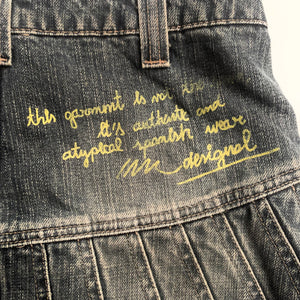 this garment is not in
it's authentic and
atypical spanish wear
desigual